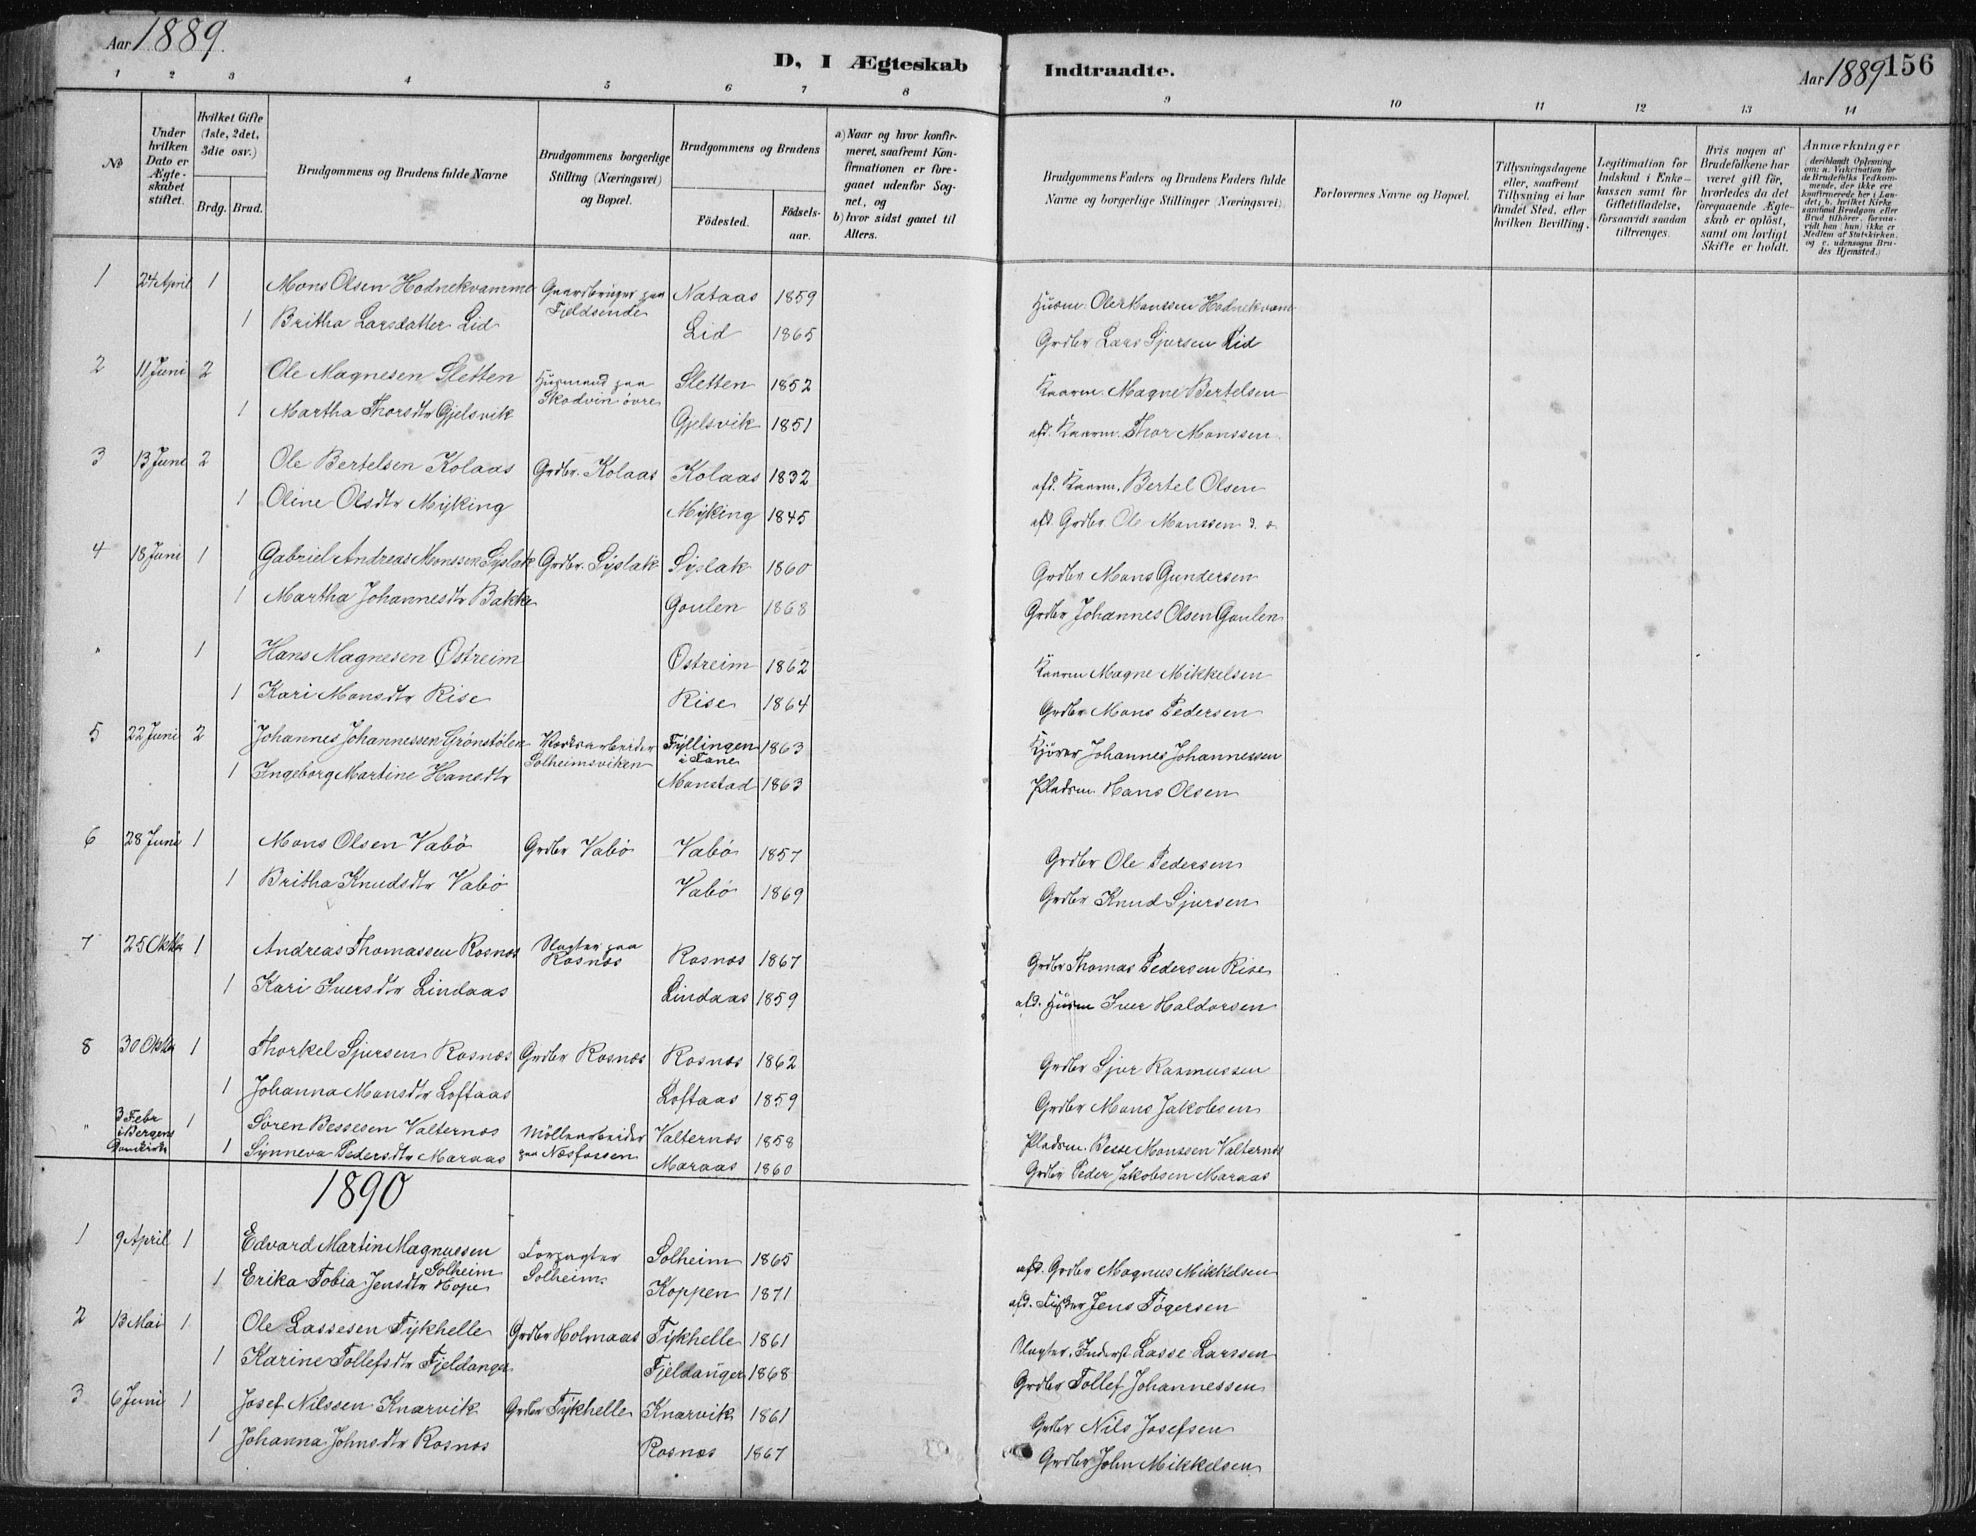 Aar 1889.
D. I Ægteskab Indtraadte.
Aar 1889 156
1 2 3 4 5 6 7 8 9 10 11 12 13 14
No
Under hvilken Dato er Ægteskabet stiftet.
Hvilket Gifte (1ste, 2det, 3die osv.)
Brdg. Brud.
Brudgommens og Brudens fulde Navne
Brudgommens borgerlige Stilling (Næringsvei) og Bopæl.
Brudgommens og Brudens
Födested. Födselsaar.
a) Naar og hvor konfirmeret, saafremt Konfirmationen er foregaaet udenfor Sognet, og
b) hvor sidst gaaet til Alters.
Brudgommens Faders og Brudens Faders fulde Navne og borgerlige Stillinger (Næringsvei).
Forlovernes Navne og Bopæl.
Tillysningsdagene eller, saafremt Tillysning ei har fundet Sted, efter hvilken Bevilling.
Legitimation for Indskud i Enkekassen samt for Giftetilladelse, forsaavidt saadan tiltrænges.
Hvis nogen af Brudefolkene har været gift för, hvorledes da det foregaaende Ægteskab er oplöst, samt om lovligt Skifte er holdt.
Anmærkninger (deriblandt Oplysning om: a. Vakcination for de Brudefolks Vedkommende, der ikke ere konfirmerede her i Landet; b. hvilket Kirkesamfund Brudgom eller Brud tilhörer, forsaavidt han (hun) ikke er Medlem af Statskirken, og c. udensogns Brudes Hjemsted.)
1 24 April 1 Mons Olsen Hodnekvamme Gaardbruger paa Fjeldsende Nataas 1859 Husm. Ole Monssen Hodnekvam
1 Britha Larsdatter Lid Lid 1865 Grdbr Lars Sjursen Lid
2 11 Juni 2 Ole Magnesen Sletten Husmand paa Skodvin övre Sletten 1852 Kaarm. Magne Bertelsen
1 Martha Thorsdtr Gjelsvik Gjelsvik 1851 afd. Kaarm. Thor Monssen
3 13 Juni 2 Ole Bertelsen Kolaas Grdbr. Kolaas Kolaas 1832 afd. Kaarm. Bertel Olsen
1 Oline Olsdtr Myking Myking 1845 afd. Grdbr. Ole Monssen
4 18 Juni 1 Gabriel Andreas Monssen Syslak Grdbr. Syslak Syslak 1860 Grdbr Mons Gundersen
1 Martha Johannesdtr Bakke Goulen 1868 Grdbr Johannes Olsen Goulen
" 1 Hans Magnesen Østreim Østreim 1862 Kaarm Magne Mikkelsen
1 Kari Monsdtr Rise Rise 1864 Grdbr Mons Pedersen
5 22 Juni 2 Johannes Johannessen Grönstölen Værksarbeider Solheimsviken Fyllingen i Fane 1863 Kjörer Johannes Johannessen
1 Ingeborg Martine Hansdtr Monstad 1863 Pladsm. Hans Olsen
6 28 Juni 1 Mons Olsen Vabö Grdbr Vabö Vabö 1857 Grdbr Ole Pedersen
1 Britha Knudsdtr Vabö Vabö 1869 Grdbr Knud Sjursen
7 25 Oktbr 1 Andreas Thomassen Rosnæs Slagter paa Rosnæs Rosnæs 1867 Grdbr Thomas Pedersen Rise
1 Kari Iversdtr Lindaas Lindaas 1859 afd. Husm Iver Haldorsen
8 30 Oktbr 1 Thorkel Sjursen Rosnæs Grdbr Rosnæs Rosnæs 1862 Grdbr Sjur Rasmussen
1 Johanna Monsdtr Loftaas Loftaas 1859 Grdbr Mons Jakobsen
" 3 Febr i Bergens Domkirke 1 Sören Bessesen Valternæs Möllearbeider paa Næsfossen Valternæs 1858 Pladsm. Besse Monssen Valternæs
1 Synneva Pedersdtr Maraas Maraas 1860 Grdbr Peder Jakobsen Maraas
1890
1 9 April 1 Edvard Martin Magnussen Solheim Forpagter Solheim Solheim 1865 afd. Grdbr Magnus Mikkelsen
1 Erika Tobia Jensdtr Hope Koppen 1871 afd. Fisker Jens Tögersen
2 13 Mai 1 Ole Lassesen Tykhelle Grdbr Holmaas Tykhelle 1861 Slagter. Inderst Lasse Larssen
1 Karine Tollefsdtr Fjeldanger Fjeldanger 1868 Grdbr Tollef Johannessen
3 6 Juni 1 Josef Nilssen Knarvik Grdbr Tykhelle Knarvik 1861 Grdbr Nils Josefsen
1 Johanna Johnsdtr Rosnæs Rosnæs 1867 Grdbr John Mikkelsen